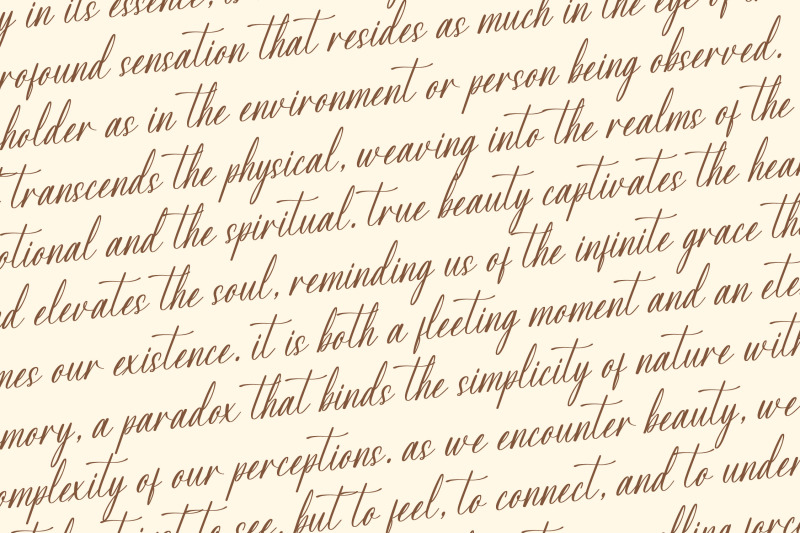 y in its essence, is
rofound sensation that resides as much in the eye of
holder as in the environment or person being observed.
transcends the physical, weaving into the realms of the
otional and the spiritual. true beauty captivates the hear
nd elevates the soul, reminding us of the infinite grace th
mes our existence. it is both a fleeting moment and an ete
mory, a paradox that binds the simplicity of nature with
omplexity of our perceptions. as we encounter beauty, we
to see, but to feel, to connect, and to under